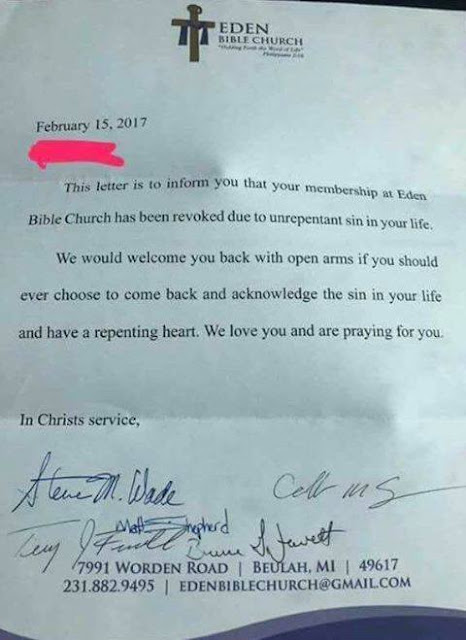 EDEN
BIBLE CHURCH
"Holding Forth the Word of Life"
Philippians 2:16
February 15, 2017
This letter is to inform you that your membership at Eden
Bible Church has been revoked due to unrepentant sin in your life.
We would welcome you back with open arms if you should
ever choose to come back and acknowledge the sin in your life
and have a repenting heart. We love you and are praying for you.
In Christs service,
Steve M. Wade
Matt Shepherd
7991 WORDEN ROAD | BEULAH, MI | 49617
231.882.9495 | EDENBIBLECHURCH@GMAIL.COM